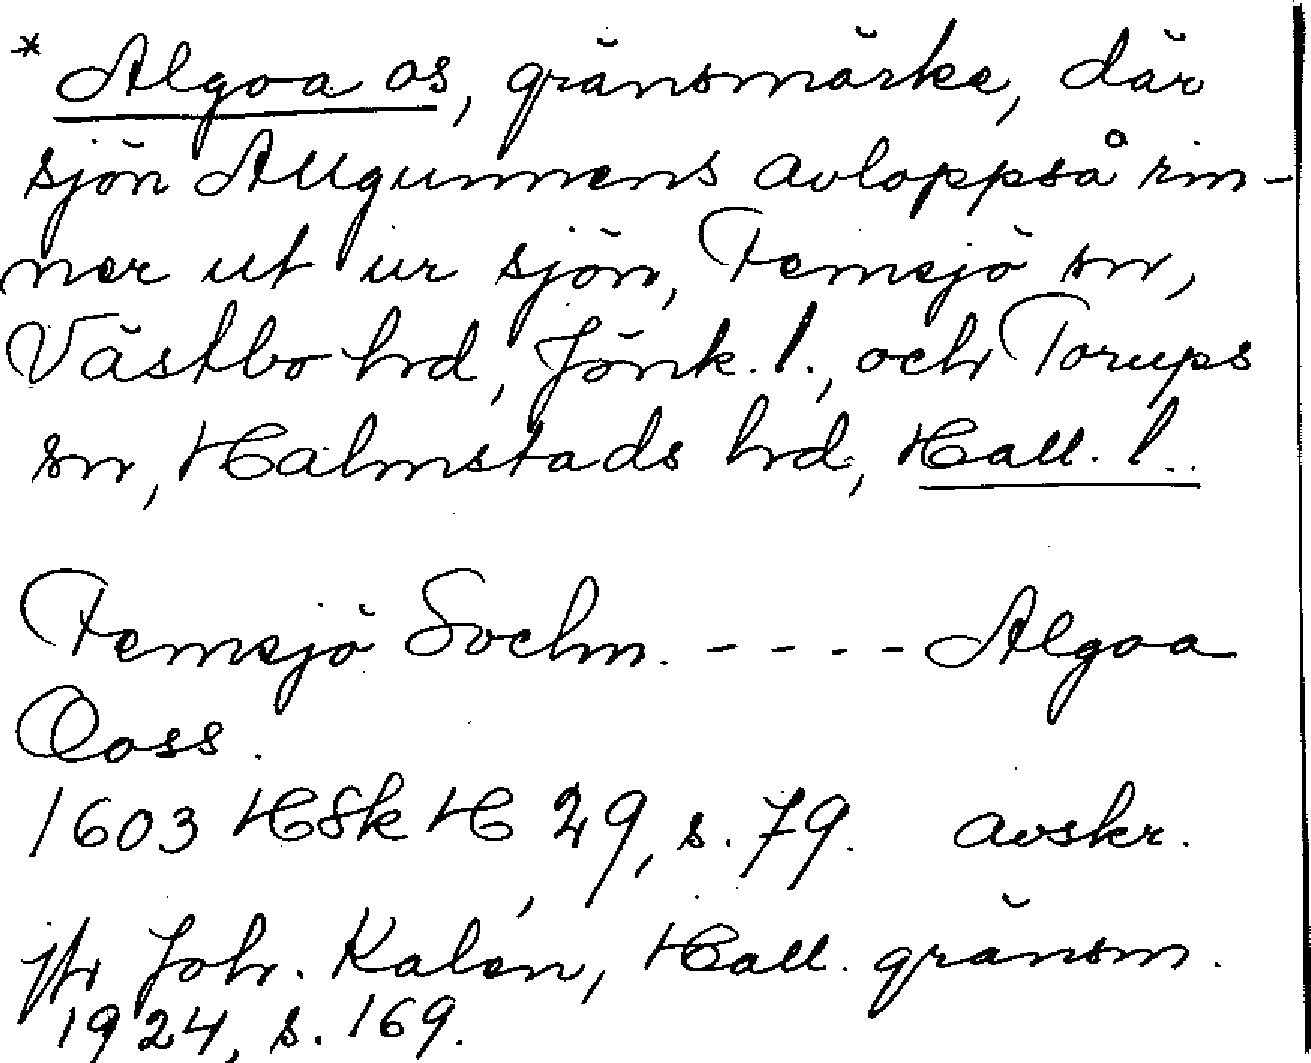 * Algoa os, gränsmärke, där
sjön Allgunnens avloppså rin-
ner ut ur sjön, Femsjö sn,
Västbo hd, Jönk. l., och Torups
sn, Halmstads hd, Hall. l.
Femsjö Sochn. - - - - Algoa
Ooss.
1603 HSk H 29, s. 79. avskr.
jfr Joh. Kalén, Hall. gränsm.
1924, s. 169.